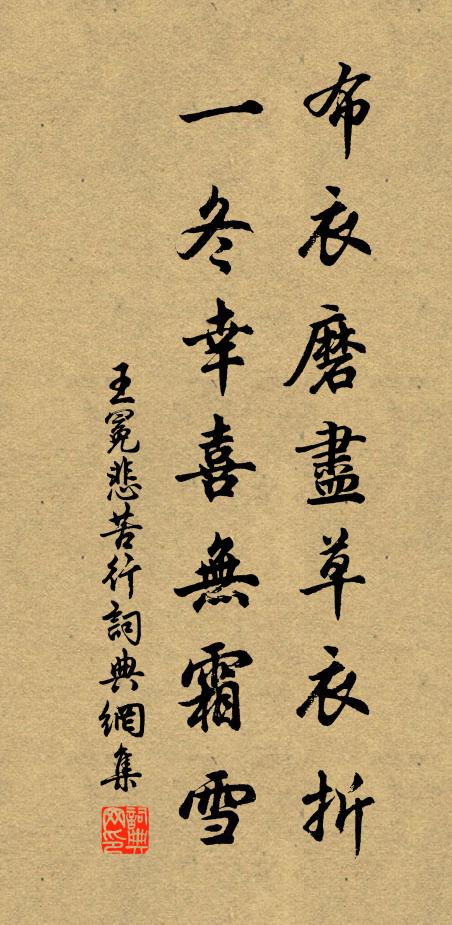 布衣磨盡草衣折
一冬幸喜無霜雪
王冕悲苦行詞典網集
詞典網印